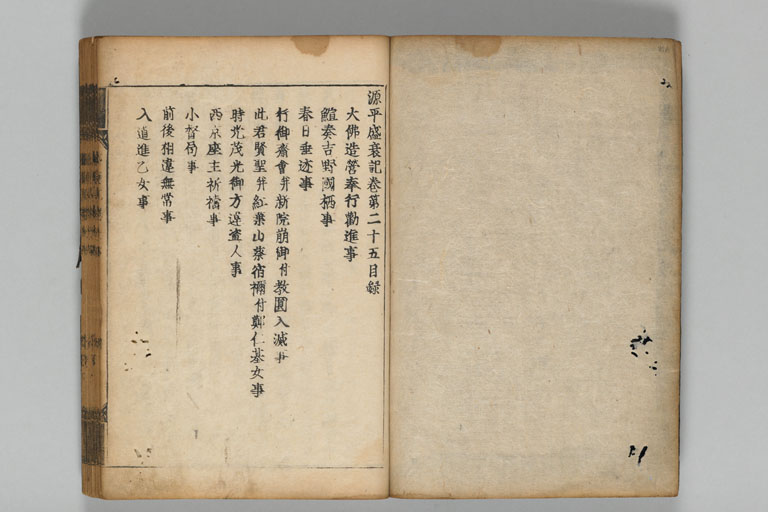 源平盛衰記卷第二十五目録
大佛造營奉行勸進事
鰚奏吉野國栖事
春日垂迹事
行御齋會并新院崩御付教圓入滅事
此君賢聖并紅葉山葵宿禰付鄭仁基女事
時光茂光御方違盗人事
西京座主祈禱事
小督局事
前後相違無常事
入道進乙女事